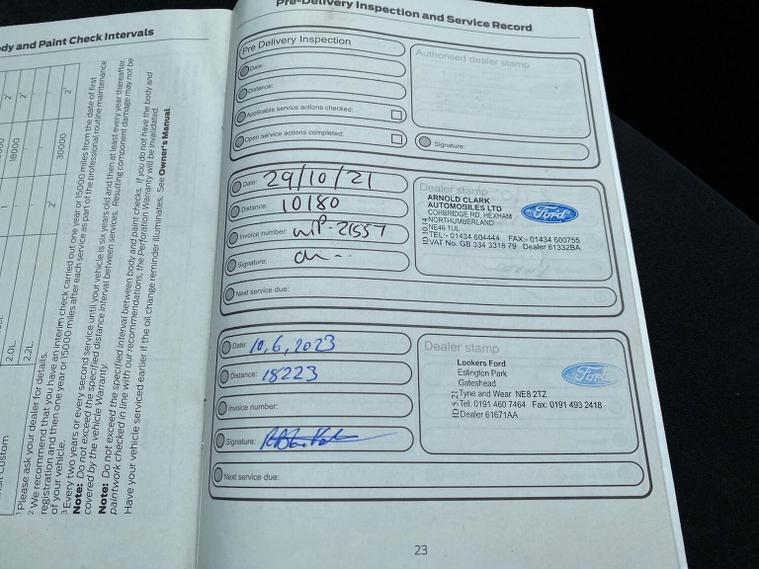 dy and Paint Check Intervals
18000
2
2
30000
2
2
2.0L
2.2L
Custom
1 Please ask your dealer for details.
2 We recommend that you have an interim check carried out one year or 15000 miles from the date of first
registration and then one year or 15000 miles after each service as part of the professional routine maintenance
of your vehicle.
3 Every two years or every second service until your vehicle is six years old and then at least every year thereafter.
Note: Do not exceed the specified distance interval between services. Resulting component damage may not be
covered by the vehicle Warranty.
Note: Do not exceed the specified interval between body and paint checks. If you do not have the body and
paintwork checked in line with our recommendations, the Perforation Warranty will be invalidated.
Have your vehicle serviced earlier if the oil change reminder illuminates. See Owner's Manual.
Pre-Delivery Inspection and Service Record
Pre Delivery Inspection
Date:
Distance:
Applicable service actions checked:
Open service actions completed:
Authorised dealer stamp
Signature:
Date: 29/10/21
Distance: 10180
Invoice number: WIP-21557
Signature:
Next service due:
Dealer stamp
ARNOLD CLARK
AUTOMOBILES LTD
CORBRIDGE RD, HEXHAM
NORTHUMBERLAND
NE46 1UL
TEL:- 01434 604444 FAX:- 01434 600755
VAT No. GB 334 3318 79 Dealer 61332BA
Ford
Date: 10,6,2023
Distance: 18223
Invoice number:
Signature:
Next service due:
Dealer stamp
Lookers Ford
Eslington Park
Gateshead
Tyne and Wear NE8 2TZ
Tel: 0191 460 7464 Fax: 0191 493 2418
Dealer 61671AA
Ford
23